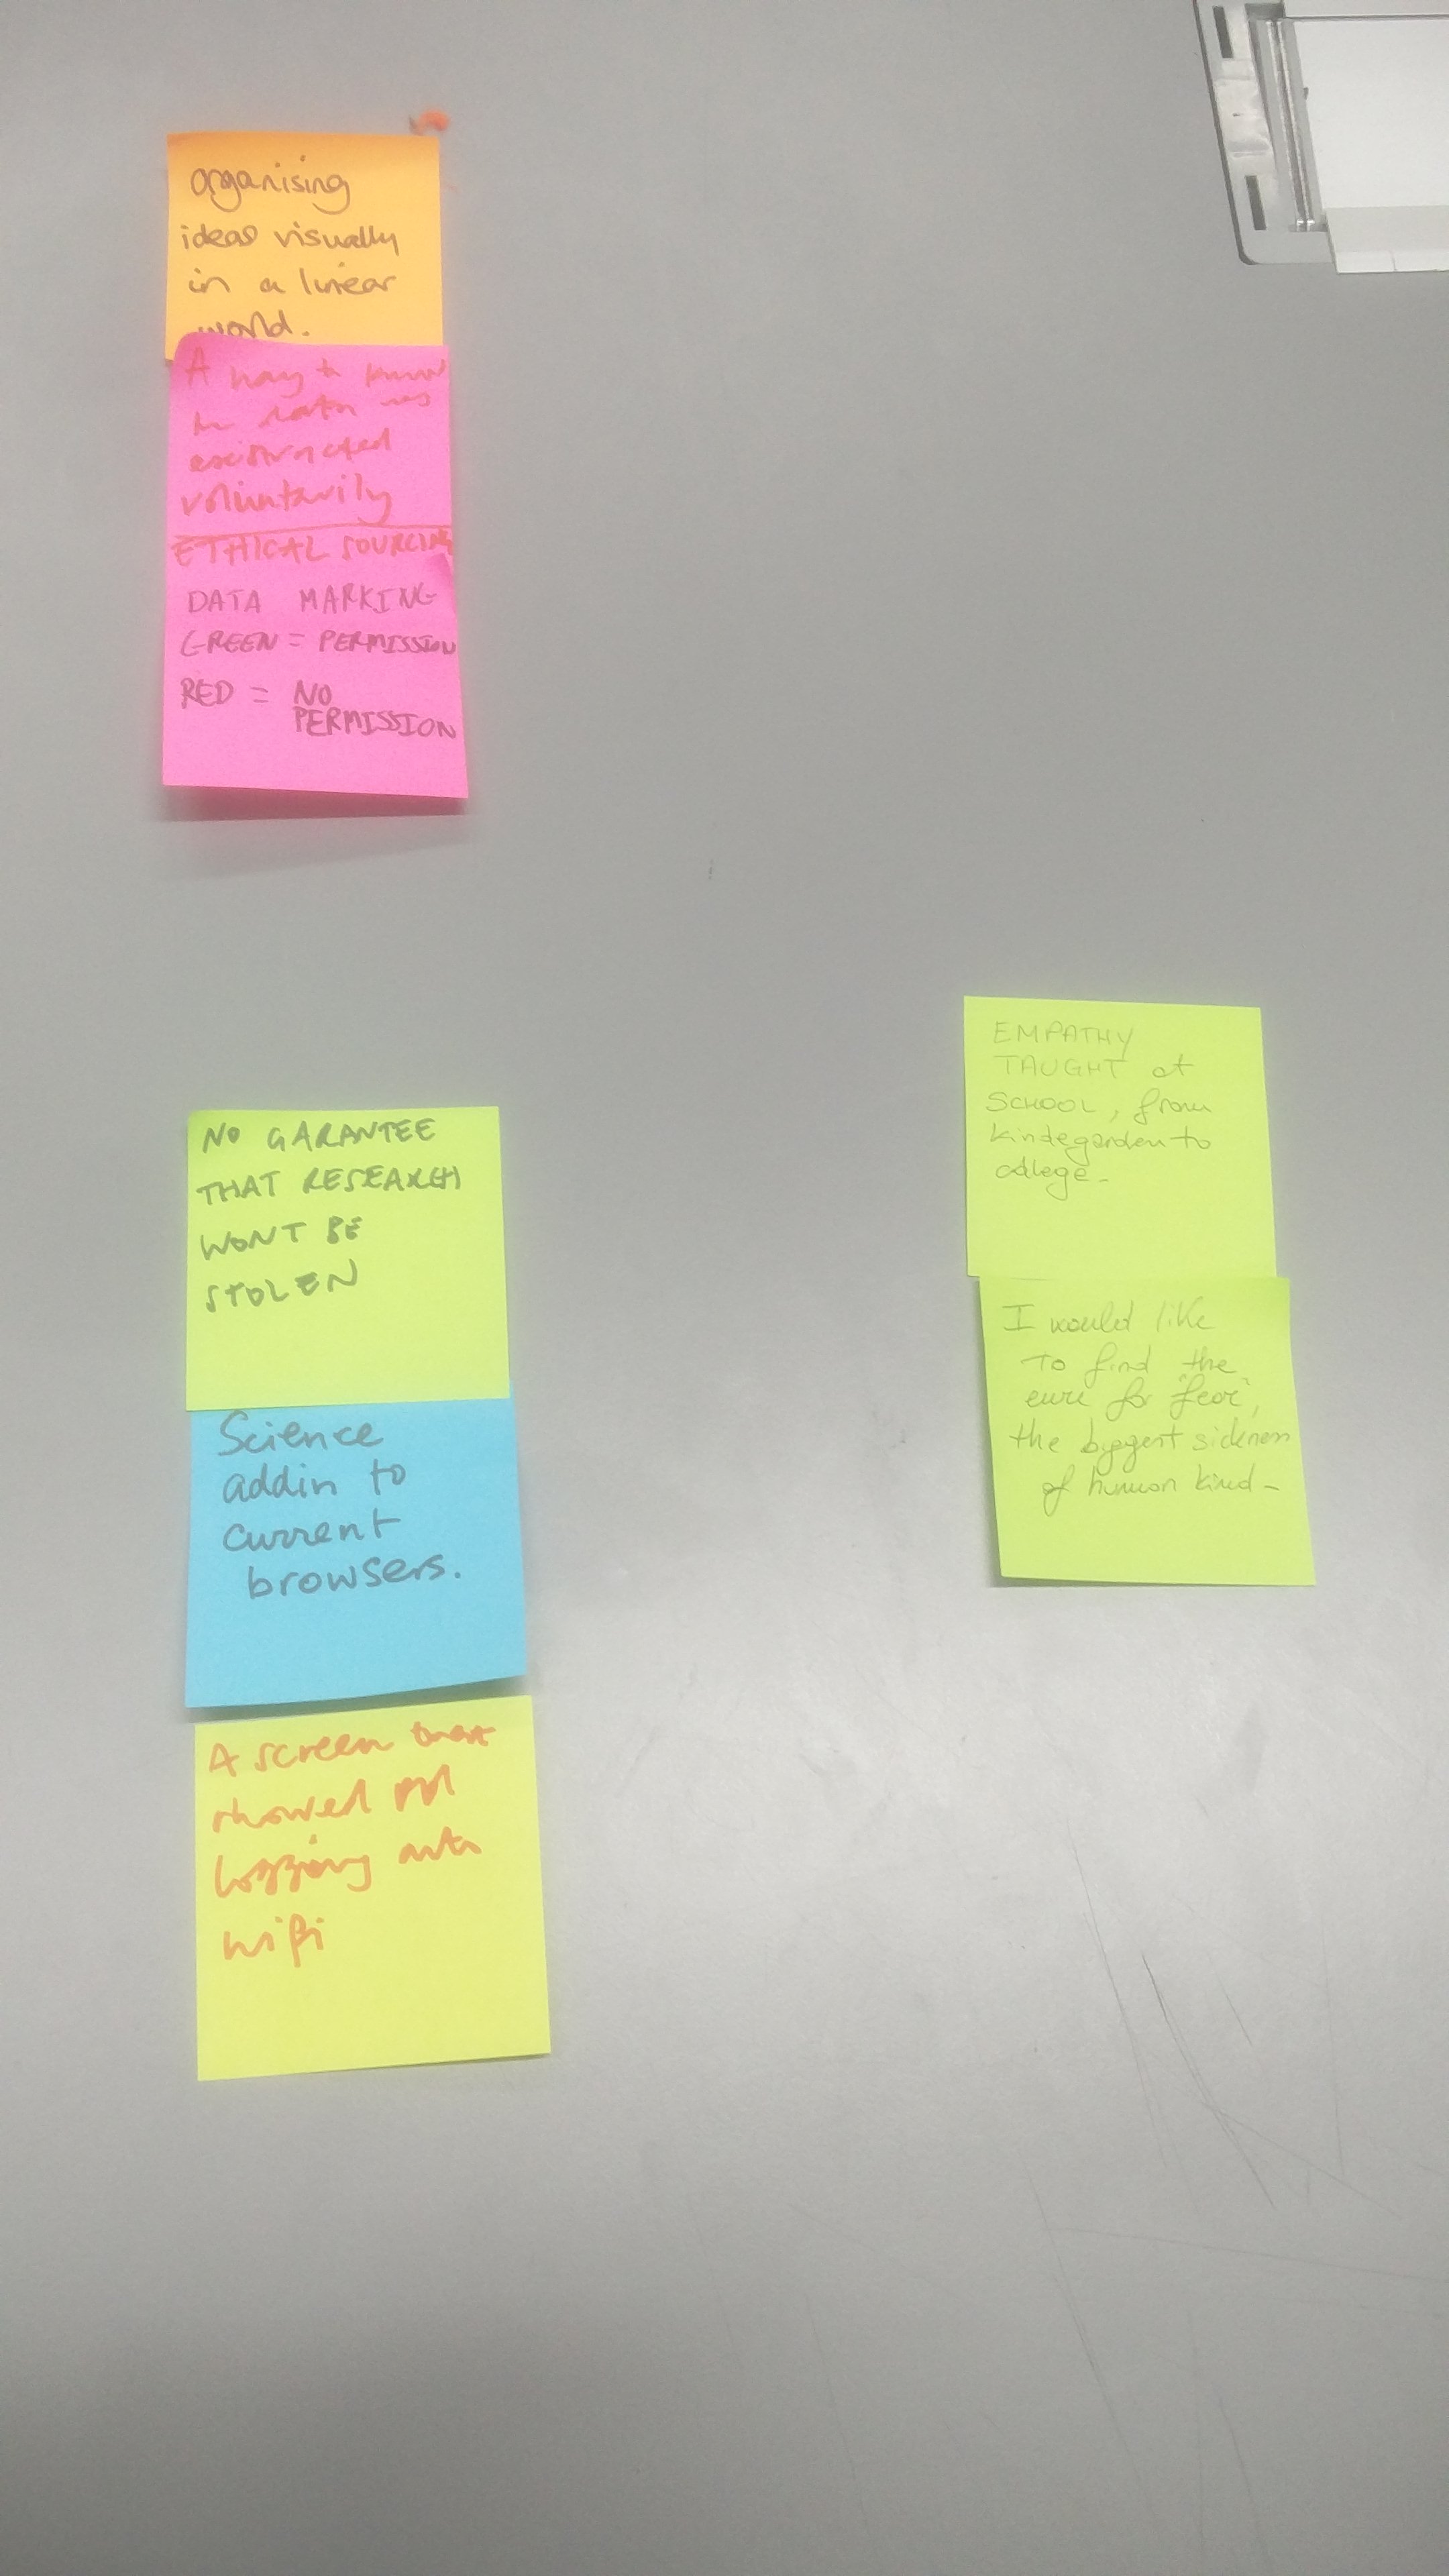 organising
ideas visually
in a linear
world.
A way to know
data was
voluntarily
ETHICAL SOURCING
DATA MARKING
GREEN = PERMISSION
RED = NO
PERMISSION
NO GARANTEE
THAT RESEARCH
WONT BE
STOLEN
Science
addin to
current
browsers.
A screen that
showed ppl
logging onto
wifi
EMPATHY
TAUGHT at
SCHOOL, from
kindegarden to
college-
I would like
To find "the
cure for fear",
the biggest sickness
of human kind-